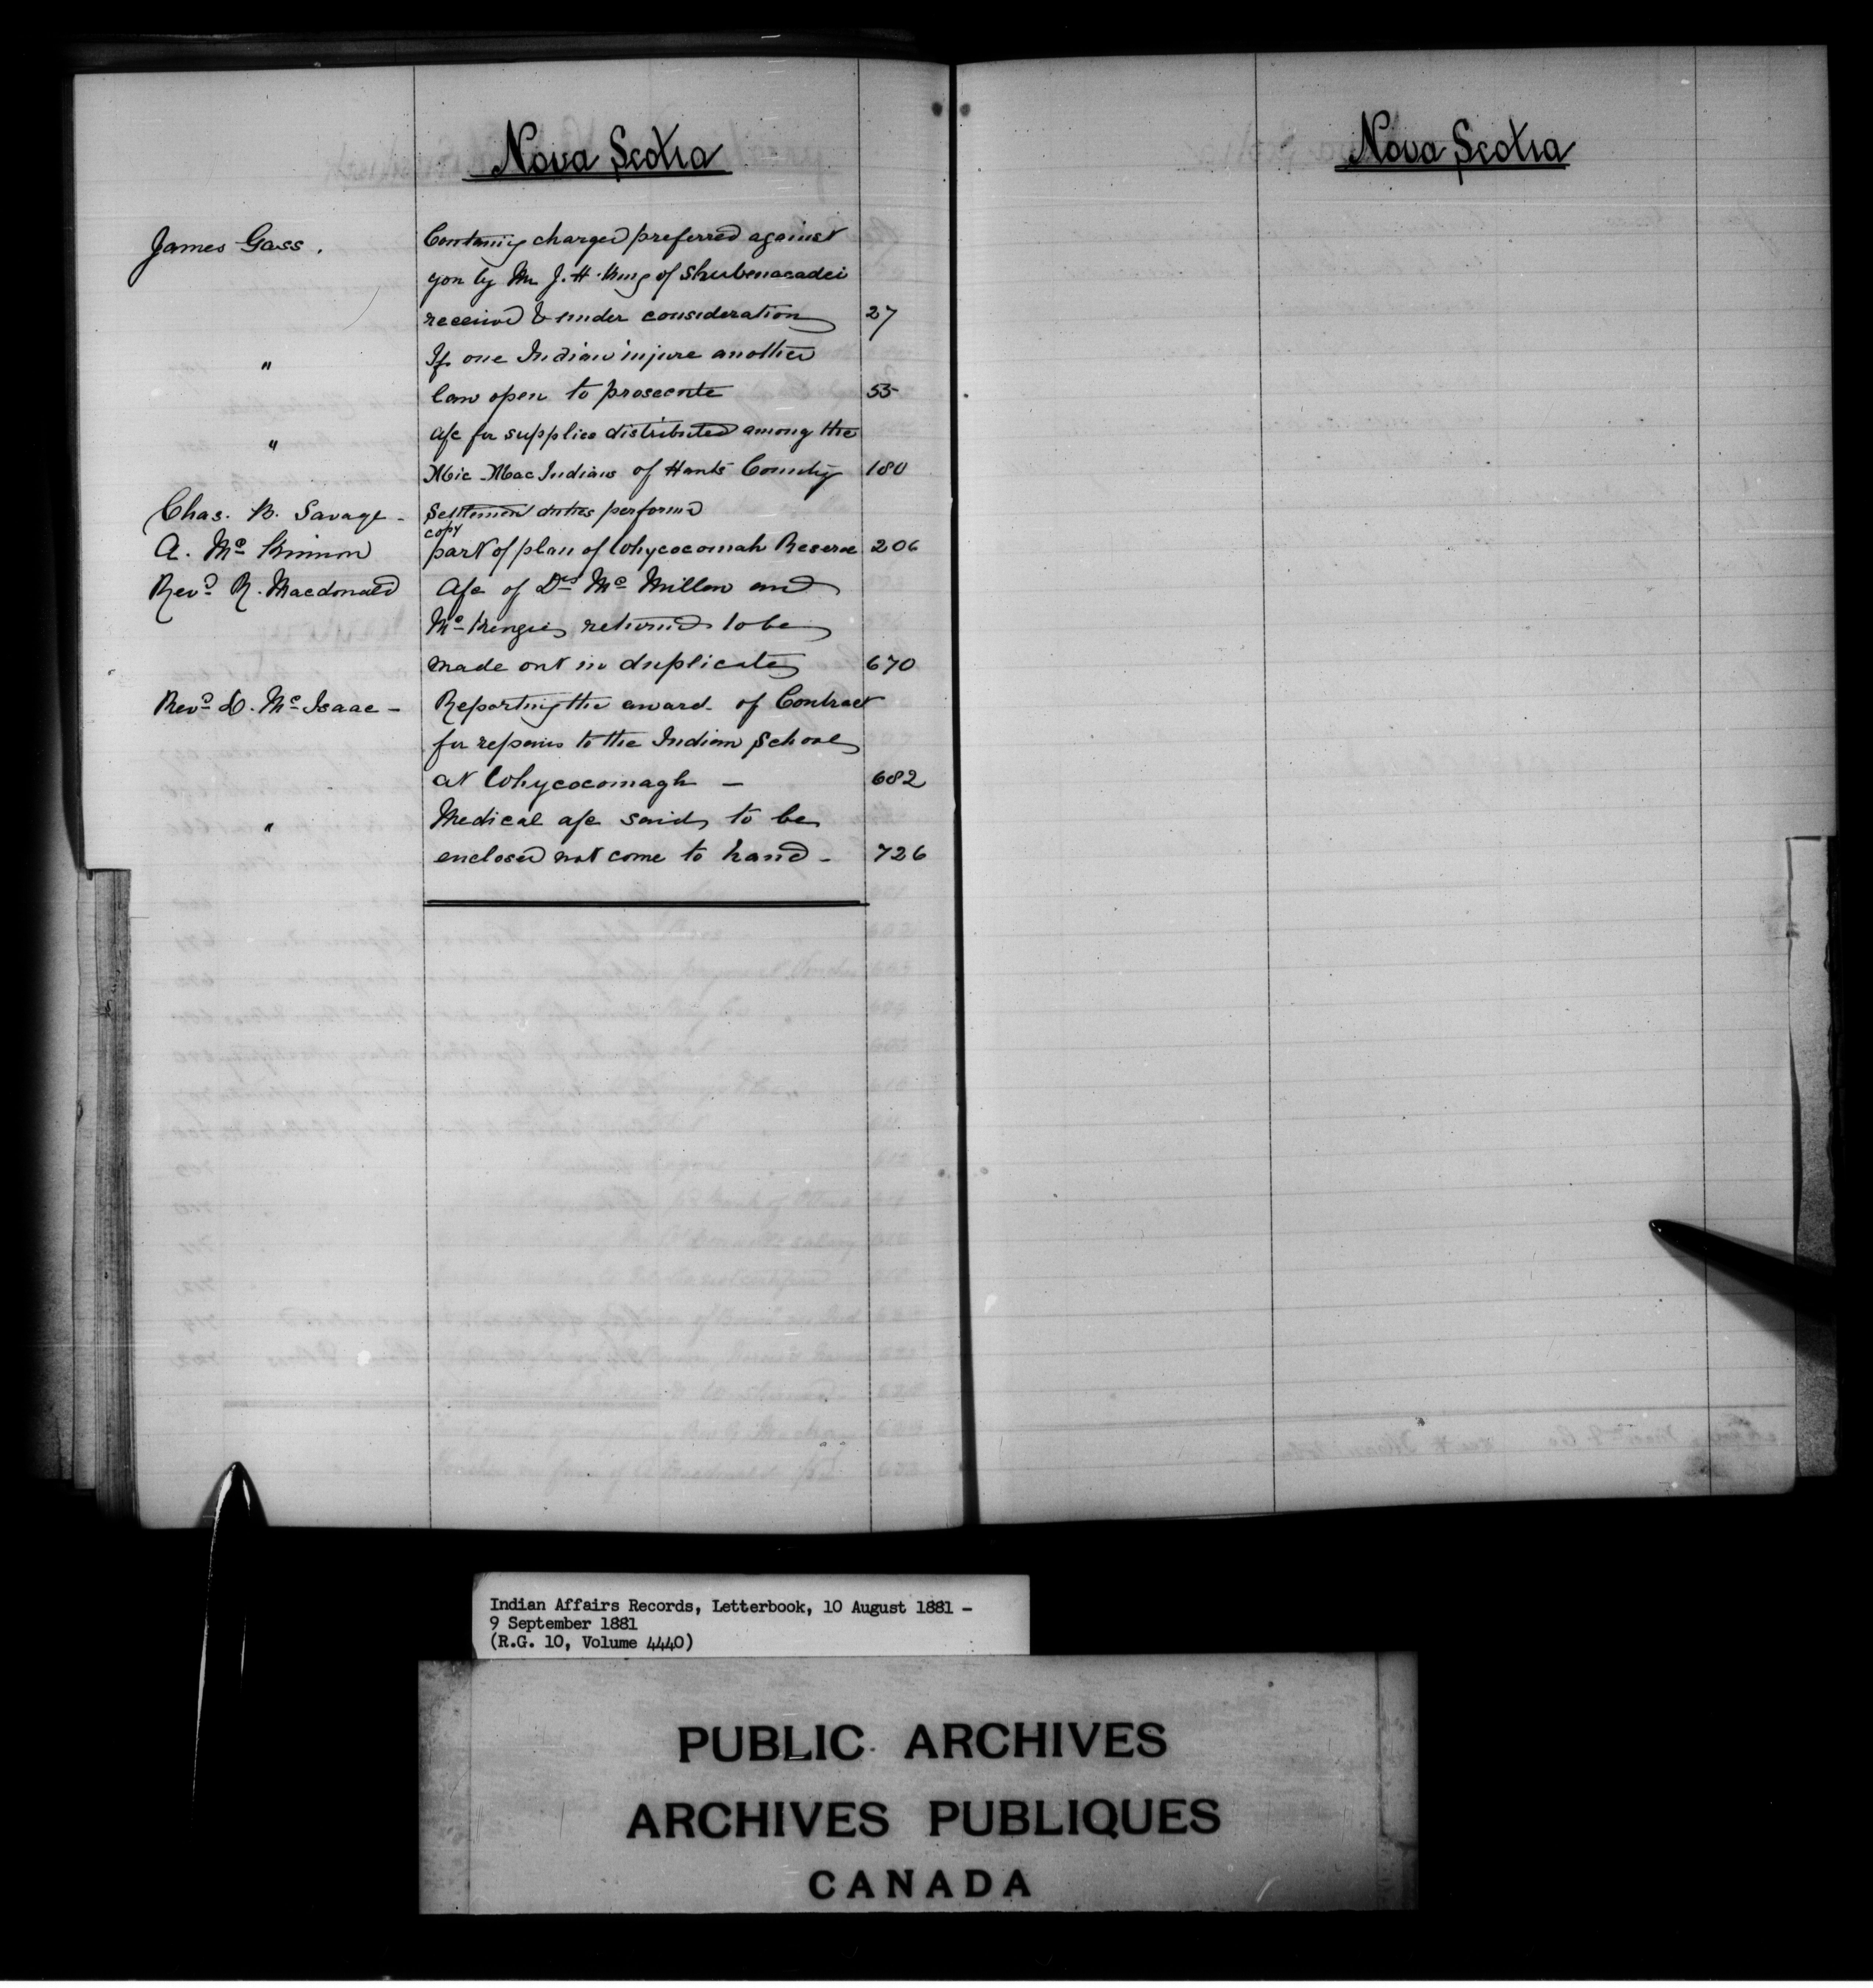 Nova Scotia
James Gass. Containing charges preferred against
you by Mr J. H. King of Shubenacadei
received & under consideration 27
" If one Indian injure another
law open to prosecute 55
" a/c for supplies distributed among the
Mic-Mac Indians of Hants County 180
Chas. B. Savage - Settlement duties performed
copy
A. Mc Kinnon part of plan of Whycocomah Reserve 206
Revd R. Macdonald A/c of Drs Mc Millan and
Mc Kenzie returned to be
made out in duplicate 670
Revd D. Mc Isaac - Reporting the award of Contract
for repairs to the Indian School
at Whycocomagh - 682
" Medical a/c said to be
enclosed not come to hand - 726
Nova Scotia
Indian Affairs Records, Letterbook, 10 August 1881 -
9 September 1881
(R.G. 10, Volume 4440)
PUBLIC ARCHIVES
ARCHIVES PUBLIQUES
CANADA